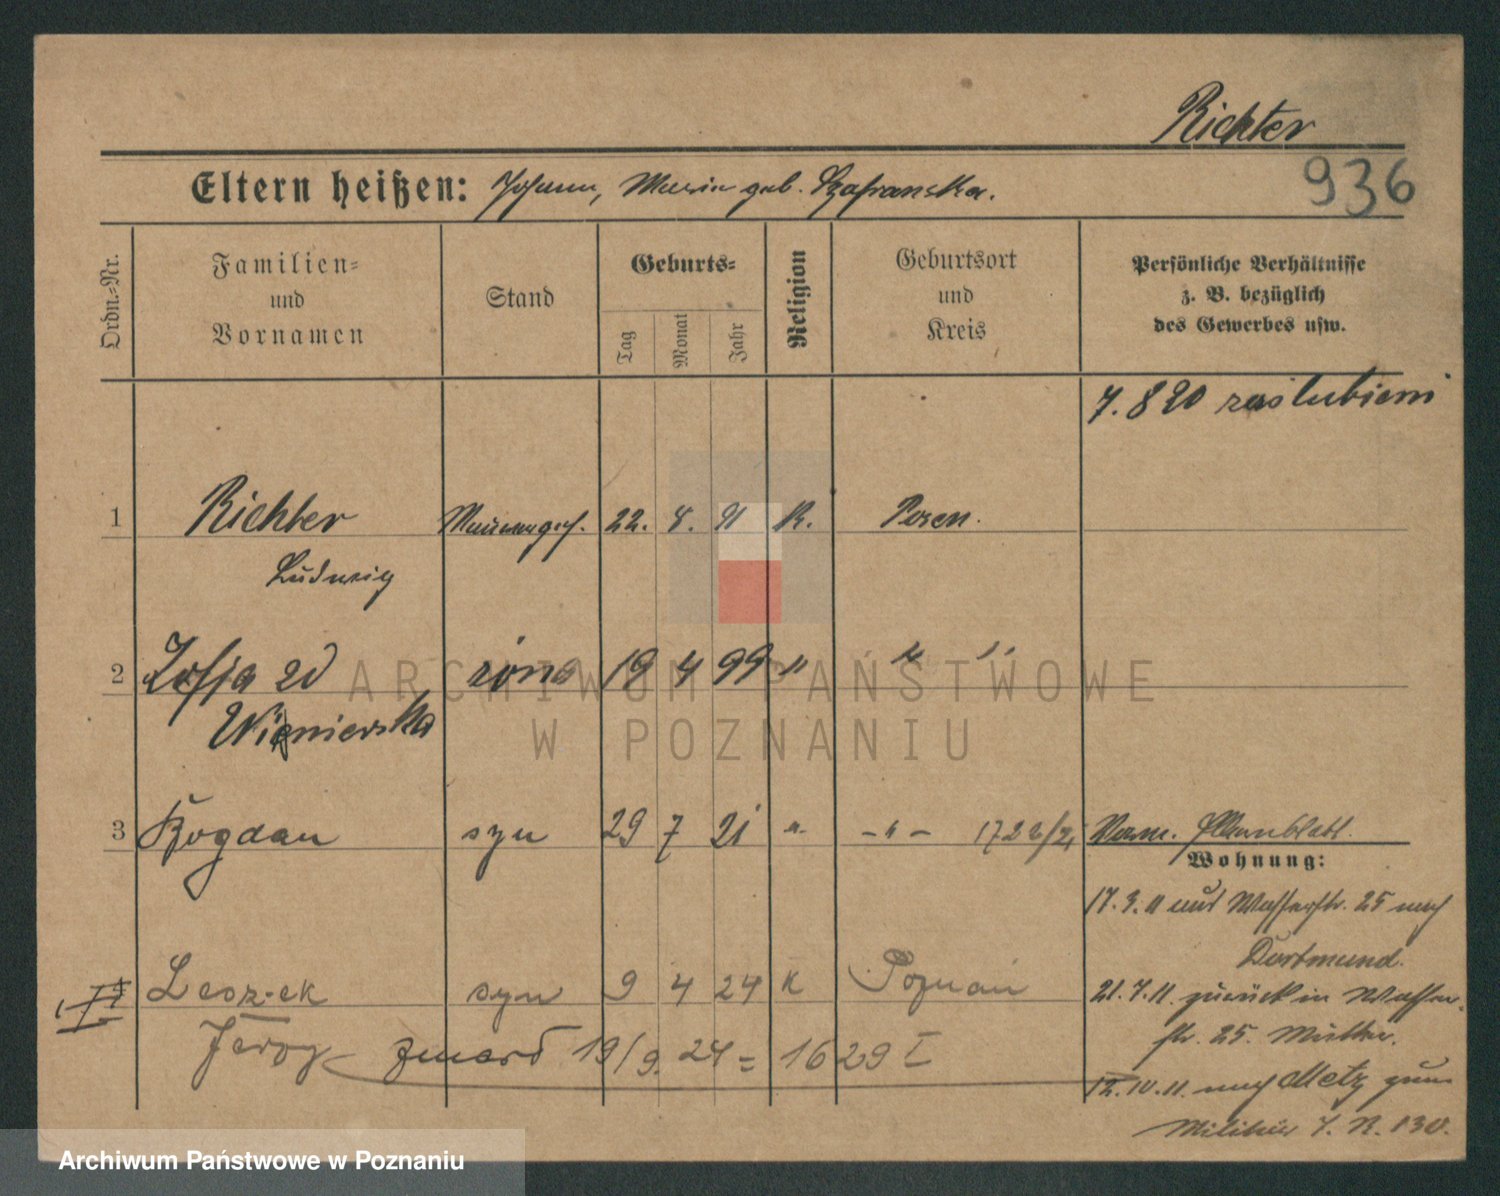 Richter
936
Eltern heißen: Johann, Maria geb. Szafranska.
Ordn.-Nr.
Familien-
und
Vornamen
Stand
Geburts-
Tag
Monat
Jahr
Religion
Geburtsort
und
Kreis
Persönliche Verhältnisse
z. B. bezüglich
des Gewerbes usw.
7.8 20 zaślubieni
1 Richter Maurerges. 22. 8. 91 K. Posen.
Ludwig
2 Zofja zd żona 19 4 99 " " "
Wienierska
3 Bogdan syn 29 7 21 " - " - 1722/21
Wohnung:
17.3.11 aus Wasserstr. 25 nach
Dortmund.
21.7.11. zurück in Wasser-
str. 25. Mutter.
12.10.11. nach Metz zum
Militär J. R. 130.
Leszek syn 9 4 24 K Poznań
Jerzy zmarł 19/9. 24 = 1629 I
ARCHIWUM PAŃSTWOWE
W POZNANIU
Archiwum Państwowe w Poznaniu